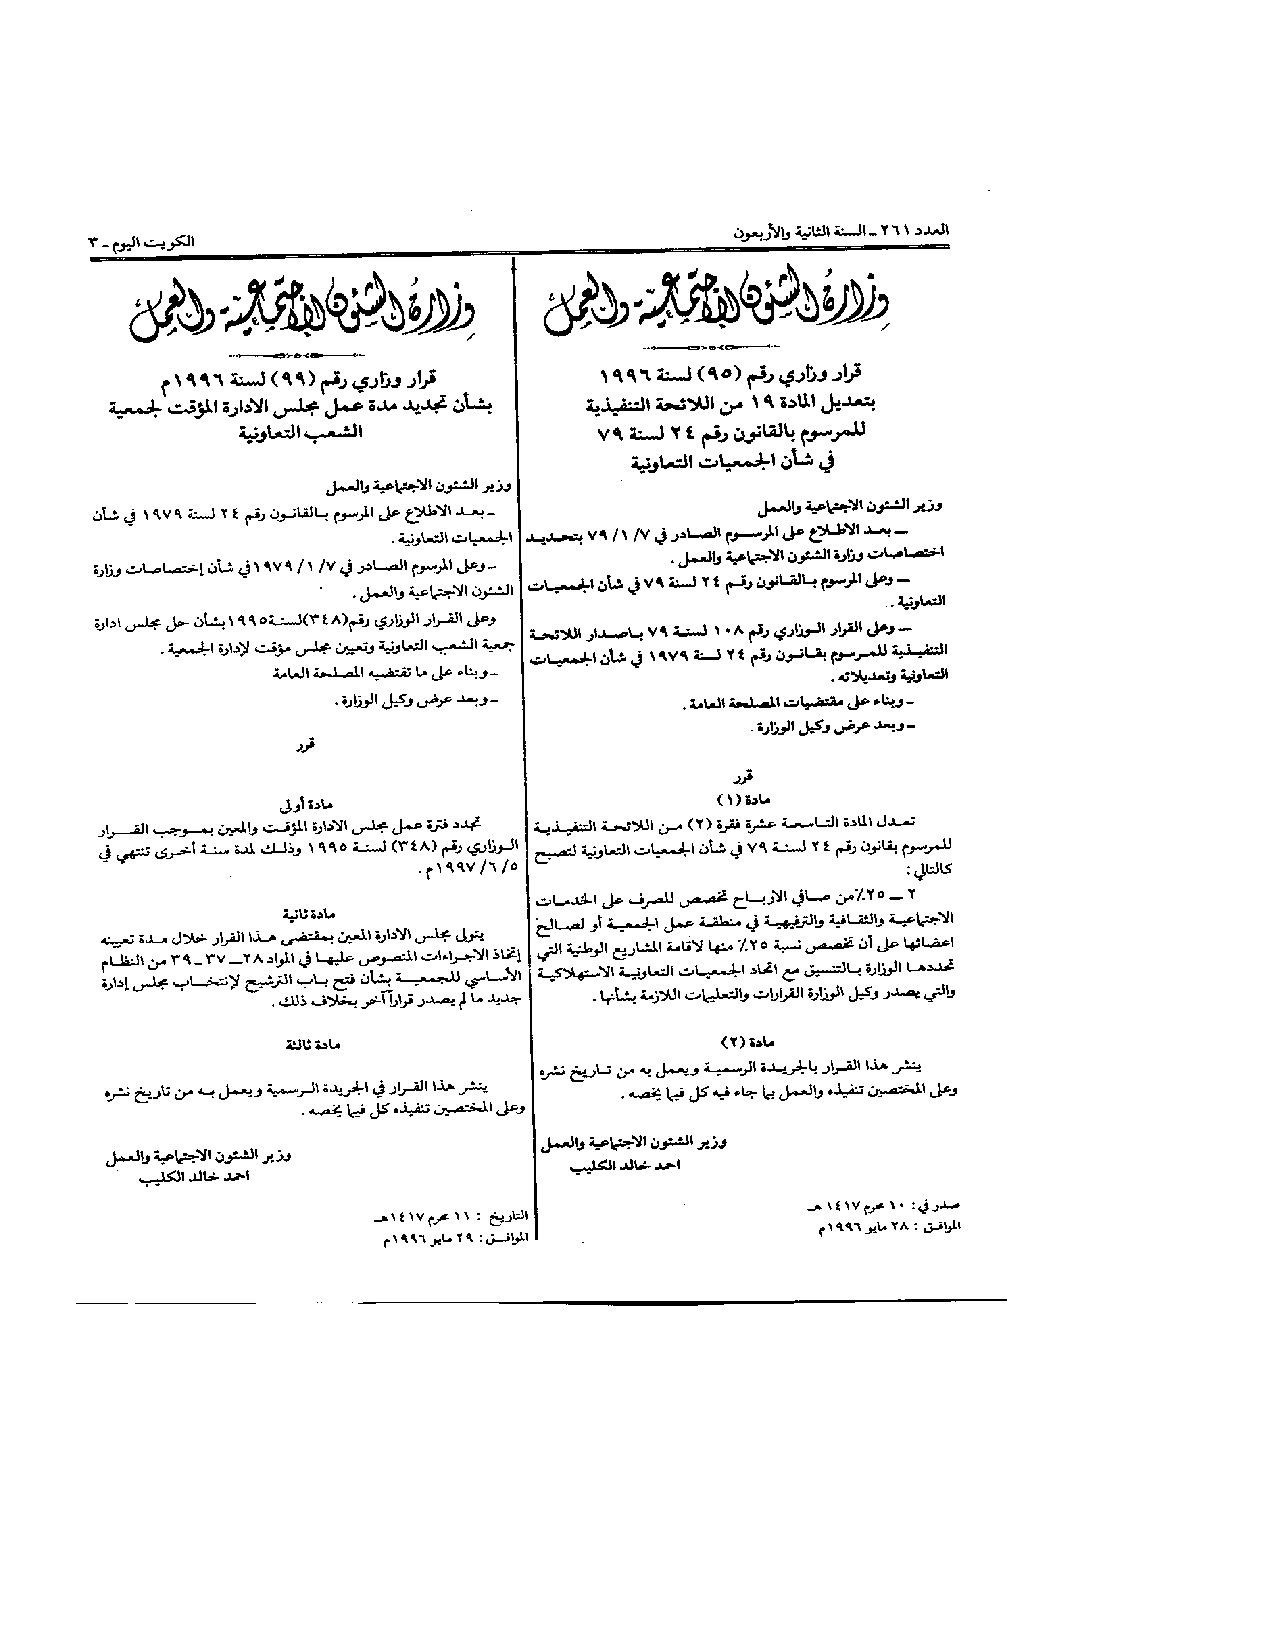 العدد ٢٦١ - السنة الثانية والأربعون
الكويت اليوم - ٣
وزارة الشئون الاجتماعية والعمل
قرار وزاري رقم (٩٥) لسنة ١٩٩٦
بتعديل المادة ١٩ من اللائحة التنفيذية
للمرسوم بالقانون رقم ٢٤ لسنة ٧٩
في شأن الجمعيات التعاونية
وزير الشئون الاجتماعية والعمل
ـ بعد الاطلاع على المرسوم الصادر في ٧/ ١/ ٧٩ بتحديد
اختصاصات وزارة الشئون الاجتماعية والعمل .
ـ وعلى المرسوم بالقانون رقم ٢٤ لسنة ٧٩ في شأن الجمعيات
التعاونية .
ـ وعلى القرار الوزاري رقم ١٠٨ لسنة ٧٩ باصدار اللائحة
التنفيذية للمرسوم بقانون رقم ٢٤ لسنة ١٩٧٩ في شأن الجمعيات
التعاونية وتعديلاته .
ـ وبناء على مقتضيات المصلحة العامة .
ـ وبعد عرض وكيل الوزارة .
قرر
مادة (١)
تعدل المادة التاسعة عشرة فقرة (٢) من اللائحة التنفيذية
للمرسوم بقانون رقم ٢٤ لسنة ٧٩ في شأن الجمعيات التعاونية لتصبح
كالتالي :
٢ ـ ٢٥٪ من صافي الأرباح تخصص للصرف على الخدمات
الاجتماعية والثقافية والترفيهية في منطقة عمل الجمعية أو لصالح
اعضائها على أن تخصص نسبة ٢٥٪ منها لاقامة المشاريع الوطنية التي
تحددها الوزارة بالتنسيق مع اتحاد الجمعيات التعاونية الاستهلاكية
والتي يصدر وكيل الوزارة القرارات والتعليمات اللازمة بشأنها .
مادة (٢)
ينشر هذا القرار بالجريدة الرسمية ويعمل به من تاريخ نشره
وعلى المختصين تنفيذه والعمل بما جاء فيه كل فيما يخصه .
وزير الشئون الاجتماعية والعمل
احمد خالد الكليب
صدر في : ١٠ محرم ١٤١٧هـ
الموافق : ٢٨ مايو ١٩٩٦م
وزارة الشئون الاجتماعية والعمل
قرار وزاري رقم (٩٩) لسنة ١٩٩٦م
بشأن تجديد مدة عمل مجلس الادارة المؤقت لجمعية
الشعب التعاونية
وزير الشئون الاجتماعية والعمل
ـ بعد الاطلاع على المرسوم بالقانون رقم ٢٤ لسنة ١٩٧٩ في شأن
الجمعيات التعاونية .
ـ وعلى المرسوم الصادر في ٧/ ١/ ١٩٧٩ في شأن إختصاصات وزارة
الشئون الاجتماعية والعمل .
وعلى القرار الوزاري رقم(٣٤٨)لسنة ١٩٩٥ بشأن حل مجلس ادارة
جمعية الشعب التعاونية وتعيين مجلس مؤقت لإدارة الجمعية .
ـ وبناء على ما تقتضيه المصلحة العامة
ـ وبعد عرض وكيل الوزارة .
قرر
مادة أولى
تجدد فترة عمل مجلس الادارة المؤقت والمعين بموجب القرار
الوزاري رقم (٣٤٨) لسنة ١٩٩٥ وذلك لمدة سنة أخرى تنتهي في
٥/ ٦/ ١٩٩٧م .
مادة ثانية
يتولى مجلس الادارة المعين بمقتضى هذا القرار خلال مدة تعيينه
إتخاذ الاجراءات المنصوص عليها في المواد ٢٨ ـ ٣٧ ـ ٣٩ من النظام
الأساسي للجمعية بشأن فتح باب الترشيح لإنتخاب مجلس إدارة
جديد ما لم يصدر قراراً آخر بخلاف ذلك .
مادة ثالثة
ينشر هذا القرار في الجريدة الرسمية ويعمل به من تاريخ نشره
وعلى المختصين تنفيذه كل فيما يخصه .
وزير الشئون الاجتماعية والعمل
احمد خالد الكليب
التاريخ : ١١ محرم ١٤١٧هـ
الموافق : ٢٩ مايو ١٩٩٦م